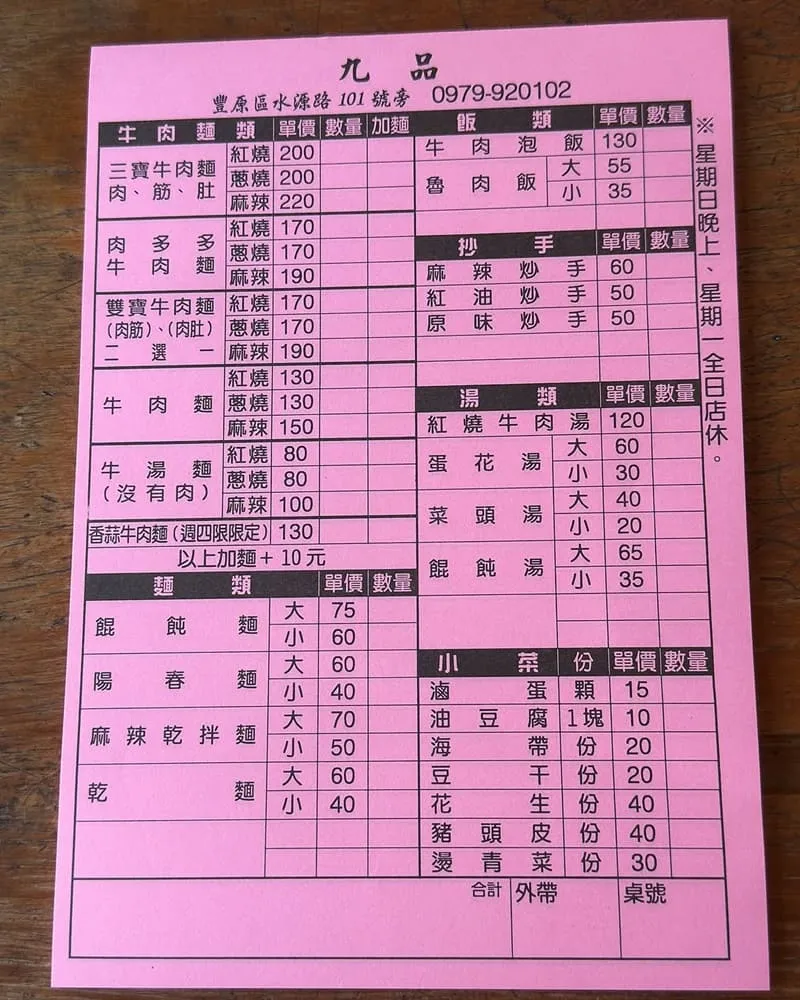 九品
豐原區水源路101號旁 0979-920102
牛肉麵類 單價 數量 加麵
三寶牛肉麵 紅燒 200
肉、筋、肚 蔥燒 200
麻辣 220
肉多多 紅燒 170
牛肉麵 蔥燒 170
麻辣 190
雙寶牛肉麵 紅燒 170
(肉筋)、(肉肚) 蔥燒 170
二選一 麻辣 190
牛肉麵 紅燒 130
蔥燒 130
麻辣 150
牛湯麵 紅燒 80
(沒有肉) 蔥燒 80
麻辣 100
香蒜牛肉麵(週四限限定) 130
以上加麵+10元
麵類 單價 數量
餛飩麵 大 75
小 60
陽春麵 大 60
小 40
麻辣乾拌麵 大 70
小 50
乾麵 大 60
小 40
飯類 單價 數量
牛肉泡飯 130
魯肉飯 大 55
小 35
抄手 單價 數量
麻辣炒手 60
紅油炒手 50
原味炒手 50
湯類 單價 數量
紅燒牛肉湯 120
蛋花湯 大 60
小 30
菜頭湯 大 40
小 20
餛飩湯 大 65
小 35
小菜 份 單價 數量
滷蛋 顆 15
油豆腐 1塊 10
海帶 份 20
豆干 份 20
花生 份 40
豬頭皮 份 40
燙青菜 份 30
合計 外帶 桌號
※星期日晚上、星期一全日店休。